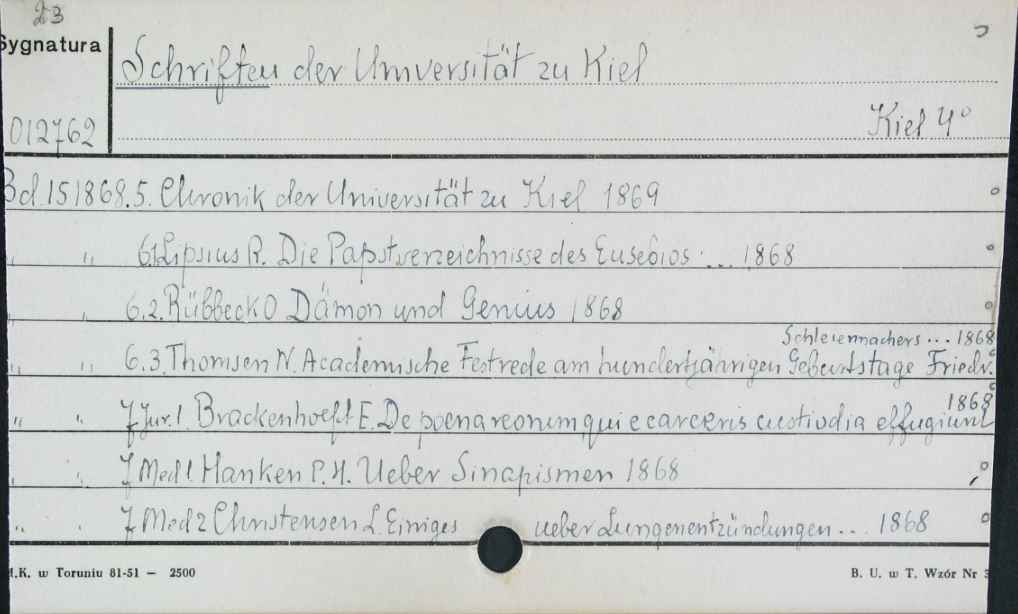 23
Sygnatura
Schriften der Universität zu Kiel
012762
Kiel 4°
Bd.15 1868.5. Chronik der Universität zu Kiel 1869
" " 6.1. Lipsius R. Die Papstverzeichnisse des Eusebios ... 1868
" " 6.2. Rübbeck O Dämon und Genius 1868
Schleiermachers ... 1868
" " 6.3. Thomsen N. Academische Festrede am hundertjährigen Geburtstage Friedr.
1868
" " 7 Jur. 1. Brackenhoeft E. De poena reorum qui e carceris custiodia effugiunt
" 7 Med 1. Hanken P. H. Ueber Sinapismen 1868
" " 7 Med 2 Christensen L. Einiges ueber Lungenentzündungen ... 1868
.K. w Toruniu 81-51 — 2500
B. U. w T. Wzór Nr 3